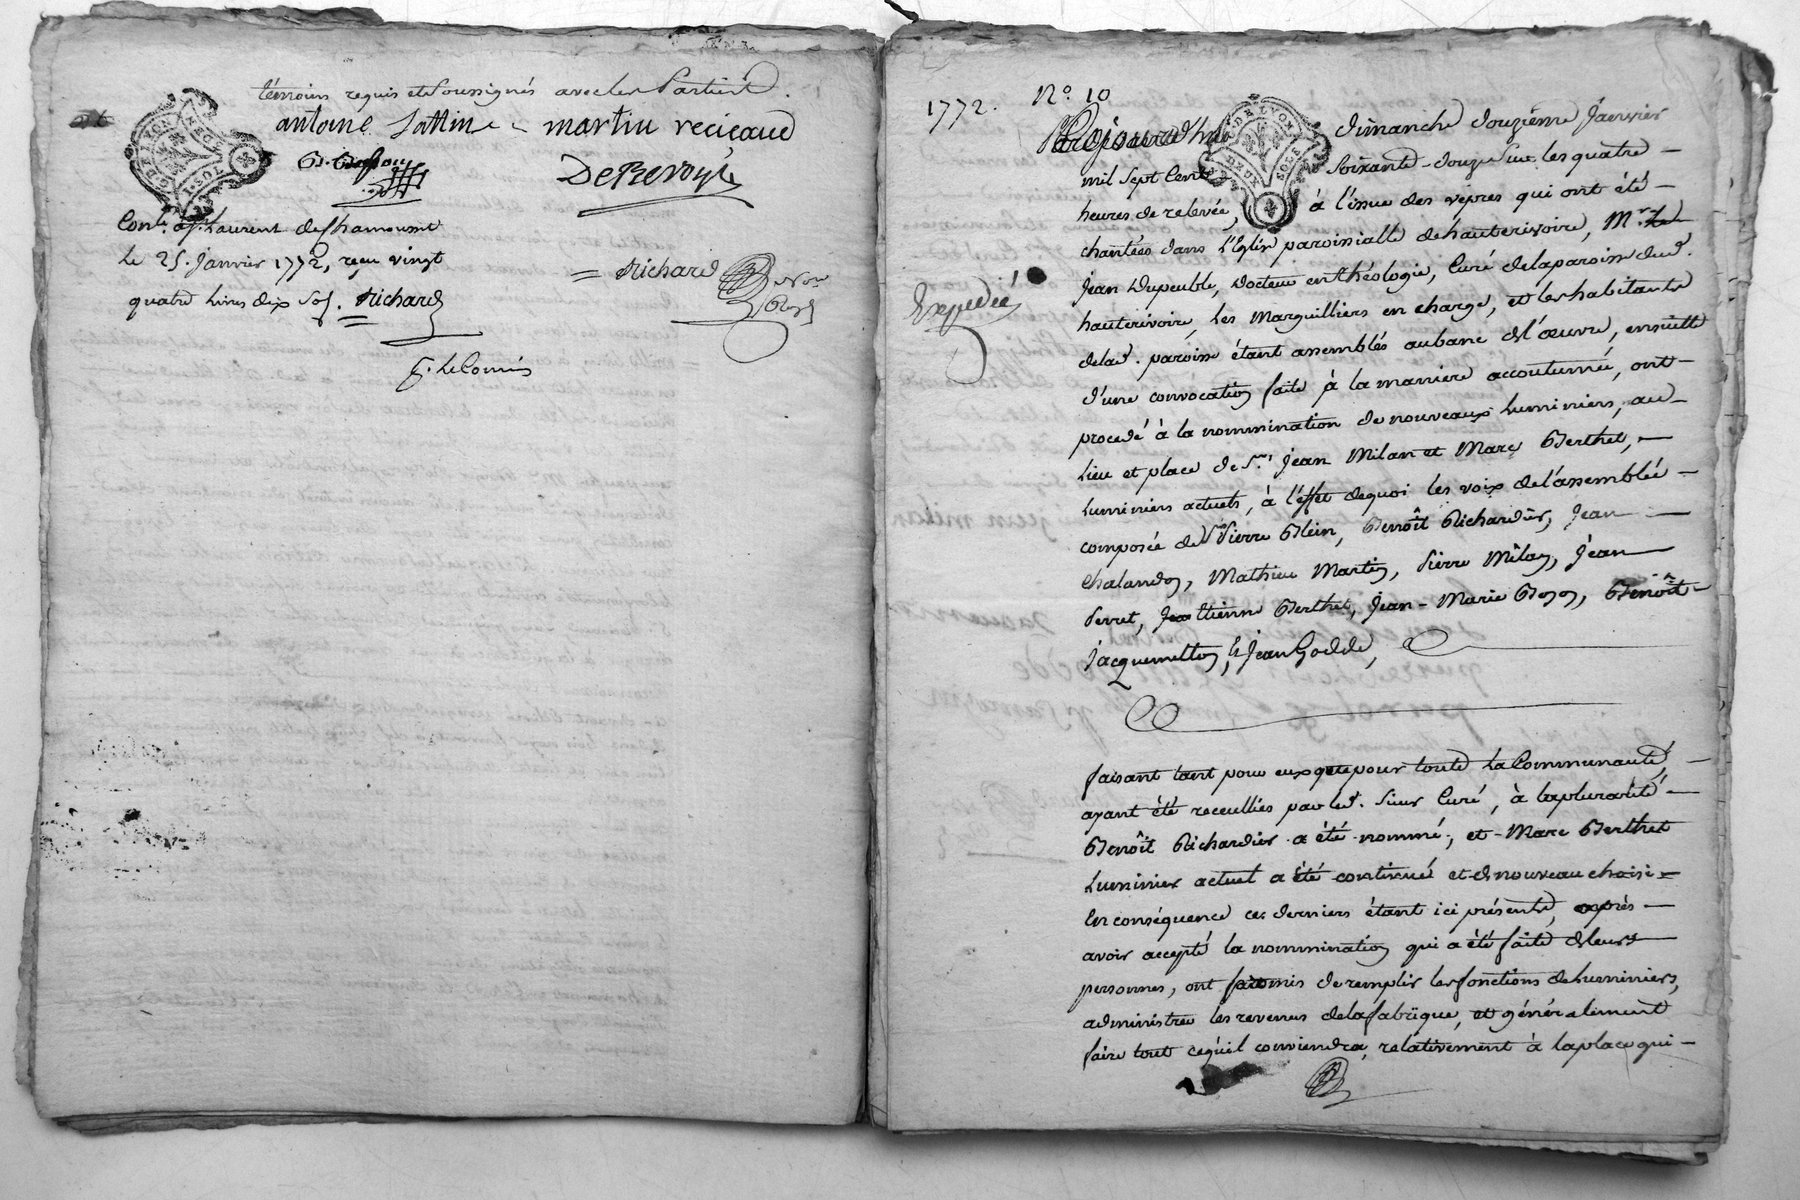 témoins requis et soussignés avec les parties.
antoine martin reciçaud
DePrevoyé
Conl. à St. Laurent de Chamousset
Le 25. Janvier 1772, reçu vingt
quatre Livres dix sol. Richard
Richard
G. DE LYON
1772. No. 10
Aujourd'hui dimanche douzième Janvier
mil sept cent soixante-douze sur les quatre
heures de relevée, à l'issue des vêpres qui ont été
chantées dans l'Eglise paroissialle de hauterivoire, Mr.
Jean Dupeuble, Docteur en théologie, Curé de la paroisse dud.
hauterivoire, les Marguilliers en charge, et les habitants
Expedié
de lad. paroisse étant assemblés au banc de l'œuvre, ensuitte
d'une convocation faite à la maniere accoutumée, ont
procedé à la nommination de nouveaux Luminiers, au
Lieu et place de Srs. Jean Milan et Marc Berthet,
Luminiers actuels, à l'effet dequoi les voix de l'assemblée
composée de Srs Pierre Blein, Benoît Richardier, Jean
Chalandon, Mathieu Martin, Pierre Milan, Jean
Perret, Etienne Berthet, Jean-Marie Boyon, Benoît
Jacquemetton, & Jean Godde,
faisant tant pour eux que pour toute La Communauté,
ayant été receullies par led. Sieur Curé, à la pluralité
Benoît Richardier a été nommé, et Marc Berthet
Luminier actuel a été continué et de nouveau choisi
En conséquence ces derniers étant ici présents, après
avoir accepté la nommination qui a été faite de leurs
personnes, ont promis de remplir les fonctions de Luminiers,
administrer les revenus de la fabrique, et généralement
faire tout ce qu'il conviendra, relativement à la place qui